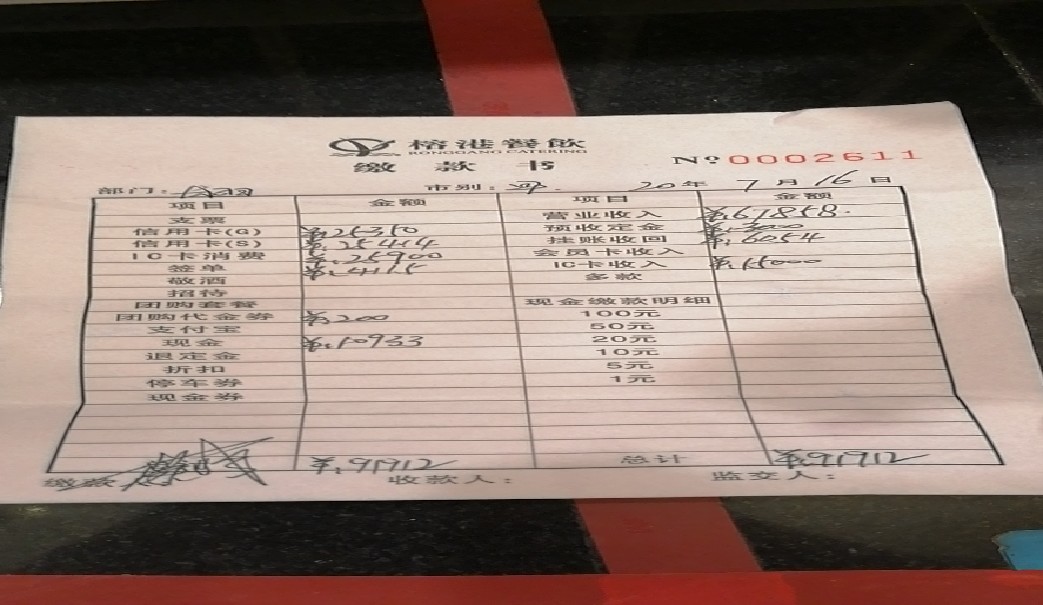 榕港餐飲
RONGGANG CATERING
缴款书
№ 0002611
部门: 市别: 20 年 7 月 16 日
项目 金额 项目 金额
支票 营业收入 ¥:67858.
信用卡(G) ¥:25350 预收定金 ¥:3000
信用卡(S) ¥:25414 挂账收回 ¥:6054
IC卡消费 ¥:25900 会员卡收入
签单 ¥:4115 IC卡收入 ¥:15000
敬酒 多款
招待
团购套餐 现金缴款明细
团购代金券 ¥:200 100元
支付宝 50元
现金 ¥:10933 20元
退定金 10元
折扣 5元
停车券 1元
现金券
¥:91912 总计 ¥:91912
缴款 收款人: 监交人: